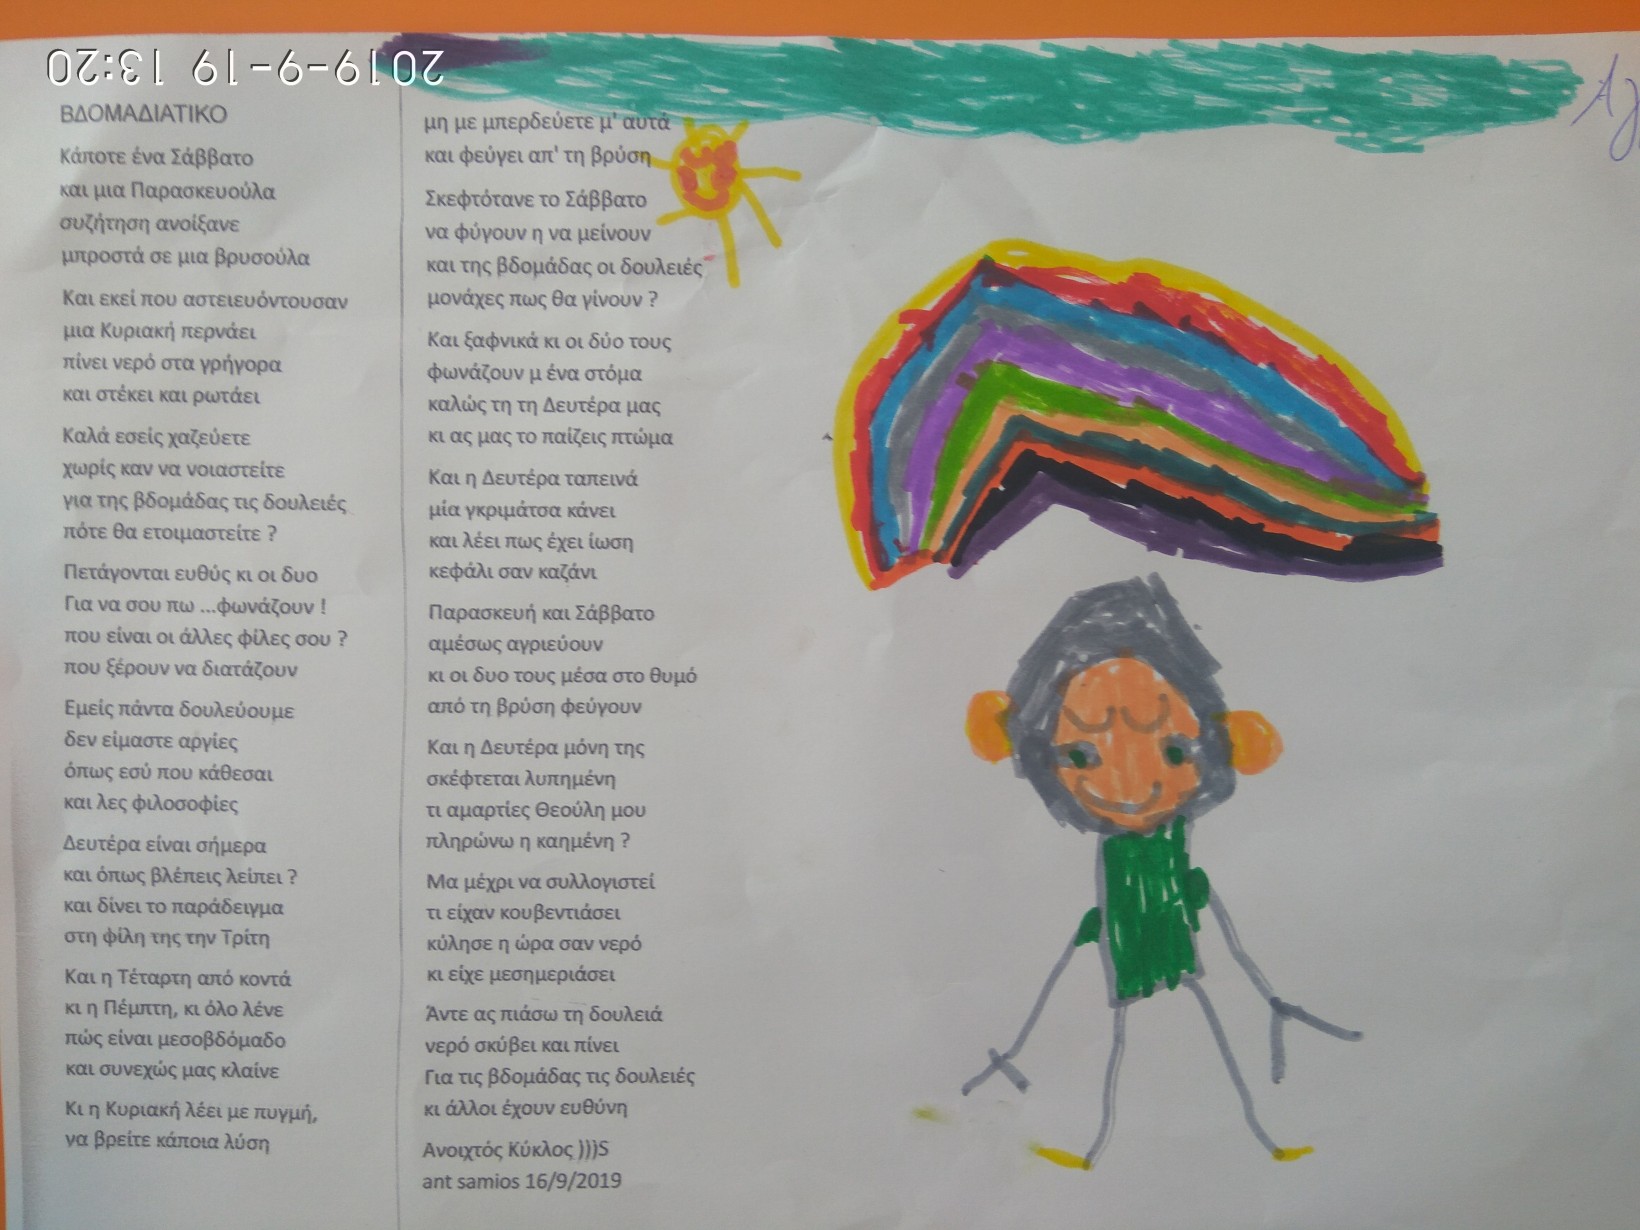 2019-9-19 13:20
ΒΔΟΜΑΔΙΑΤΙΚΟ
Κάποτε ένα Σάββατο
και μια Παρασκευούλα
συζήτηση ανοίξανε
μπροστά σε μια βρυσούλα
Και εκεί που αστειευόντουσαν
μια Κυριακή περνάει
πίνει νερό στα γρήγορα
και στέκει και ρωτάει
Καλά εσείς χαζεύετε
χωρίς καν να νοιαστείτε
για της βδομάδας τις δουλειές
πότε θα ετοιμαστείτε ?
Πετάγονται ευθύς κι οι δυο
Για να σου πω ...φωνάζουν !
που είναι οι άλλες φίλες σου ?
που ξέρουν να διατάζουν
Εμείς πάντα δουλεύουμε
δεν είμαστε αργίες
όπως εσύ που κάθεσαι
και λες φιλοσοφίες
Δευτέρα είναι σήμερα
και όπως βλέπεις λείπει ?
και δίνει το παράδειγμα
στη φίλη της την Τρίτη
Και η Τέταρτη από κοντά
κι η Πέμπτη, κι όλο λένε
πώς είναι μεσοβδόμαδο
και συνεχώς μας κλαίνε
Κι η Κυριακή λέει με πυγμή,
να βρείτε κάποια λύση
μη με μπερδεύετε μ' αυτά
και φεύγει απ' τη βρύση
Σκεφτότανε το Σάββατο
να φύγουν η να μείνουν
και της βδομάδας οι δουλειές
μονάχες πως θα γίνουν ?
Και ξαφνικά κι οι δύο τους
φωνάζουν μ ένα στόμα
καλώς τη τη Δευτέρα μας
κι ας μας το παίζεις πτώμα
Και η Δευτέρα ταπεινά
μία γκριμάτσα κάνει
και λέει πως έχει ίωση
κεφάλι σαν καζάνι
Παρασκευή και Σάββατο
αμέσως αγριεύουν
κι οι δυο τους μέσα στο θυμό
από τη βρύση φεύγουν
Και η Δευτέρα μόνη της
σκέφτεται λυπημένη
τι αμαρτίες Θεούλη μου
πληρώνω η καημένη ?
Μα μέχρι να συλλογιστεί
τι είχαν κουβεντιάσει
κύλησε η ώρα σαν νερό
κι είχε μεσημεριάσει
Άντε ας πιάσω τη δουλειά
νερό σκύβει και πίνει
Για τις βδομάδας τις δουλειές
κι άλλοι έχουν ευθύνη
Ανοιχτός Κύκλος )))S
ant samios 16/9/2019